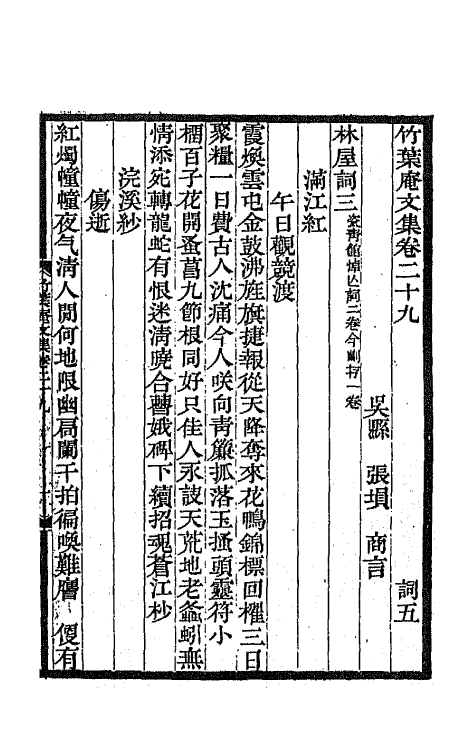 竹葉庵文集卷二十九
吳縣 張塤 商言 詞五
林屋詞三 瓷青館悼亡詞二卷今刪存一卷
滿江紅
午日觀競渡
霞煥雲屯金鼓沸旌旗捷報從天降奪來花鴨錦標回櫂三日
聚糧一日費古人沈痛今人咲向青簾抓落玉搔頭靈符小
榴百子花開蚤菖九節根同好只佳人永訣天荒地老盎蚓無
情添宛轉龍蛇有恨迷清曉合曹娥碑下續招魂蒼江杪
浣溪紗
傷逝
紅燭幢幢夜气淸人間何地限幽扃闌干拍徧喚難譍 便有
竹葉庵文集卷二十九